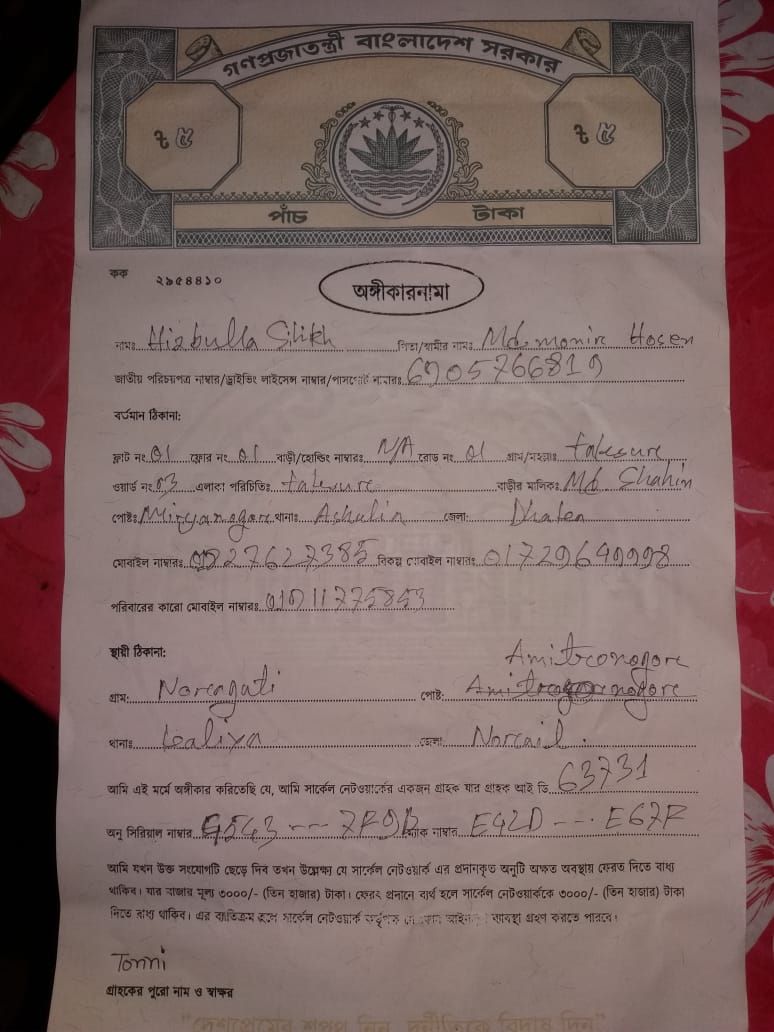 গণপ্রজাতন্ত্রী বাংলাদেশ সরকার
৳ ৫ ৳ ৫
পাঁচ টাকা
কক ২৯৫৪৪১০
অঙ্গীকারনামা
নামঃ Hizbulla Shikh পিতা/স্বামীর নামঃ Md. monir Hosen
জাতীয় পরিচয়পত্র নাম্বার/ড্রাইভিং লাইসেন্স নাম্বার/পাসপোর্ট নাম্বারঃ 6905766819
বর্তমান ঠিকানা:
ফ্লাট নং 01 ফ্লোর নং 01 বাড়ী/হোল্ডিং নাম্বারঃ N/A রোড নং 01 গ্রাম/মহল্লাঃ
ওয়ার্ড নং 03 এলাকা পরিচিতিঃ বাড়ীর মালিকঃ Md Shahin
পোষ্টঃ থানাঃ Ashulia জেলাঃ
মোবাইল নাম্বারঃ বিকল্প মোবাইল নাম্বারঃ
পরিবারের কারো মোবাইল নাম্বারঃ
স্থায়ী ঠিকানা:
Amitronogore
গ্রামঃ Noragati পোষ্টঃ
থানাঃ kaliya জেলাঃ Norail.
আমি এই মর্মে অঙ্গীকার করিতেছি যে, আমি সার্কেল নেটওয়ার্কের একজন গ্রাহক যার গ্রাহক আই ডি 63731
অনু সিরিয়াল নাম্বার ম্যাক নাম্বার E42D --- E67F
আমি যখন উক্ত সংযোগটি ছেড়ে দিব তখন উল্লেক্ষ্য যে সার্কেল নেটওয়ার্ক এর প্রদানকৃত অনুটি অক্ষত অবস্থায় ফেরত দিতে বাধ্য
থাকিব। যার বাজার মূল্য ৩০০০/- (তিন হাজার) টাকা। ফেরৎ প্রদানে ব্যর্থ হলে সার্কেল নেটওয়ার্ককে ৩০০০/- (তিন হাজার) টাকা
দিতে বাধ্য থাকিব। এর ব্যতিক্রম হলে সার্কেল নেটওয়ার্ক কর্তৃপক্ষ যে কোন আইনগত ব্যবস্থা গ্রহণ করতে পারবে।
Tonni
গ্রাহকের পুরো নাম ও স্বাক্ষর
"দেশপ্রেমের শপথ নিন, দুর্নীতিকে বিদায় দিন"